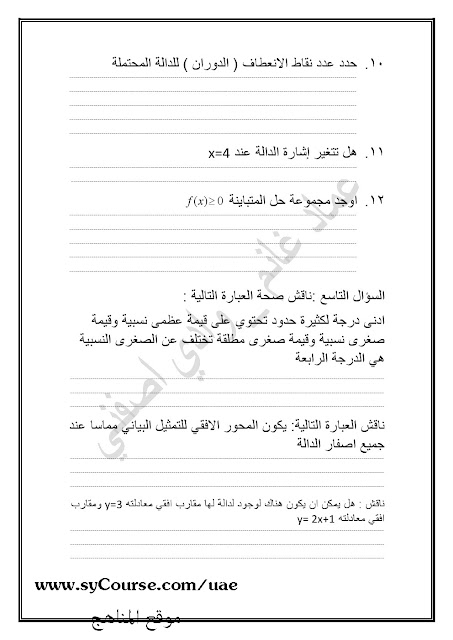 ١٠. حدد عدد نقاط الانعطاف ( الدوران ) للدالة المحتملة
١١. هل تتغير إشارة الدالة عند x=4
١٢. اوجد مجموعة حل المتباينة f(x)≥0
السؤال التاسع :ناقش صحة العبارة التالية :
ادنى درجة لكثيرة حدود تحتوي على قيمة عظمى نسبية وقيمة
صغرى نسبية وقيمة صغرى مطلقة تختلف عن الصغرى النسبية
هي الدرجة الرابعة
ناقش العبارة التالية: يكون المحور الافقي للتمثيل البياني مماسا عند
جميع اصفار الدالة
ناقش : هل يمكن ان يكون هناك لوجود لدالة لها مقارب افقي معادلته y=3 ومقارب
افقي معادلته y= 2x+1
www.syCourse.com/uae
موقع المناهج
عماد غانم